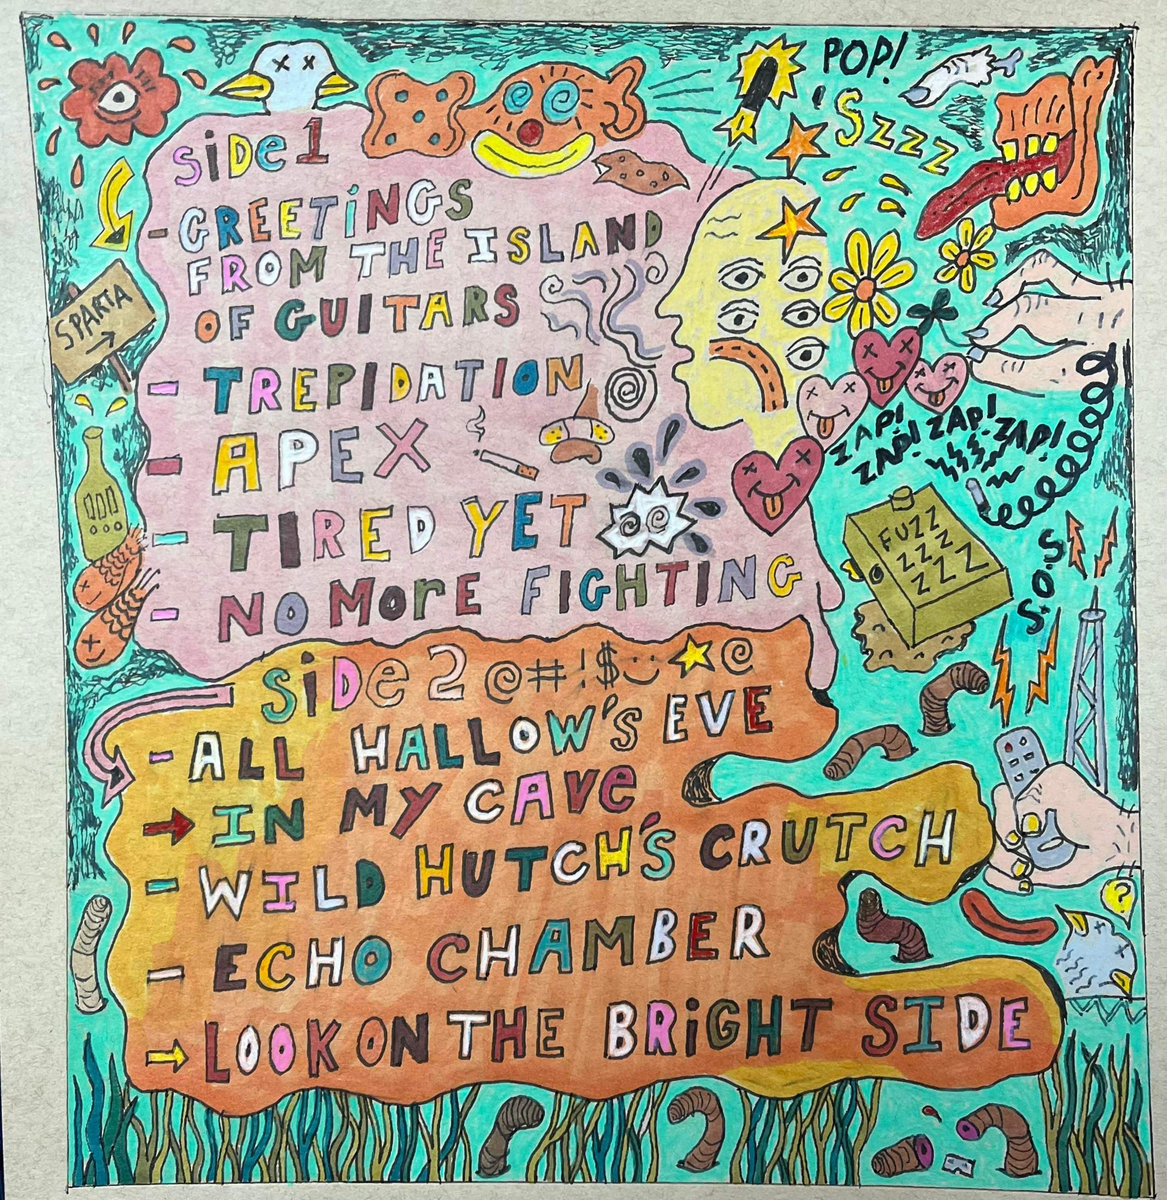 POP!
'SZZZ
SiDe 1
- GREETiNGS
FROM THE ISLAND
OF GUITARS
SPARTA
- TREPIDATION
- APEX
ZAP! ZAP! ZAP! ZAP!
- TIRED YET
FUZZ
ZZZ
ZZZ
S.O.S
- NO MOrE FIGHTING
SiDe 2 @#!$ @
- ALL HALLOW'S EVE
IN MY CAVe
- WILD HUTCH'S CRUTCH
?
- ECHO CHAMBER
LOOK ON THE BRiGHT SIDE